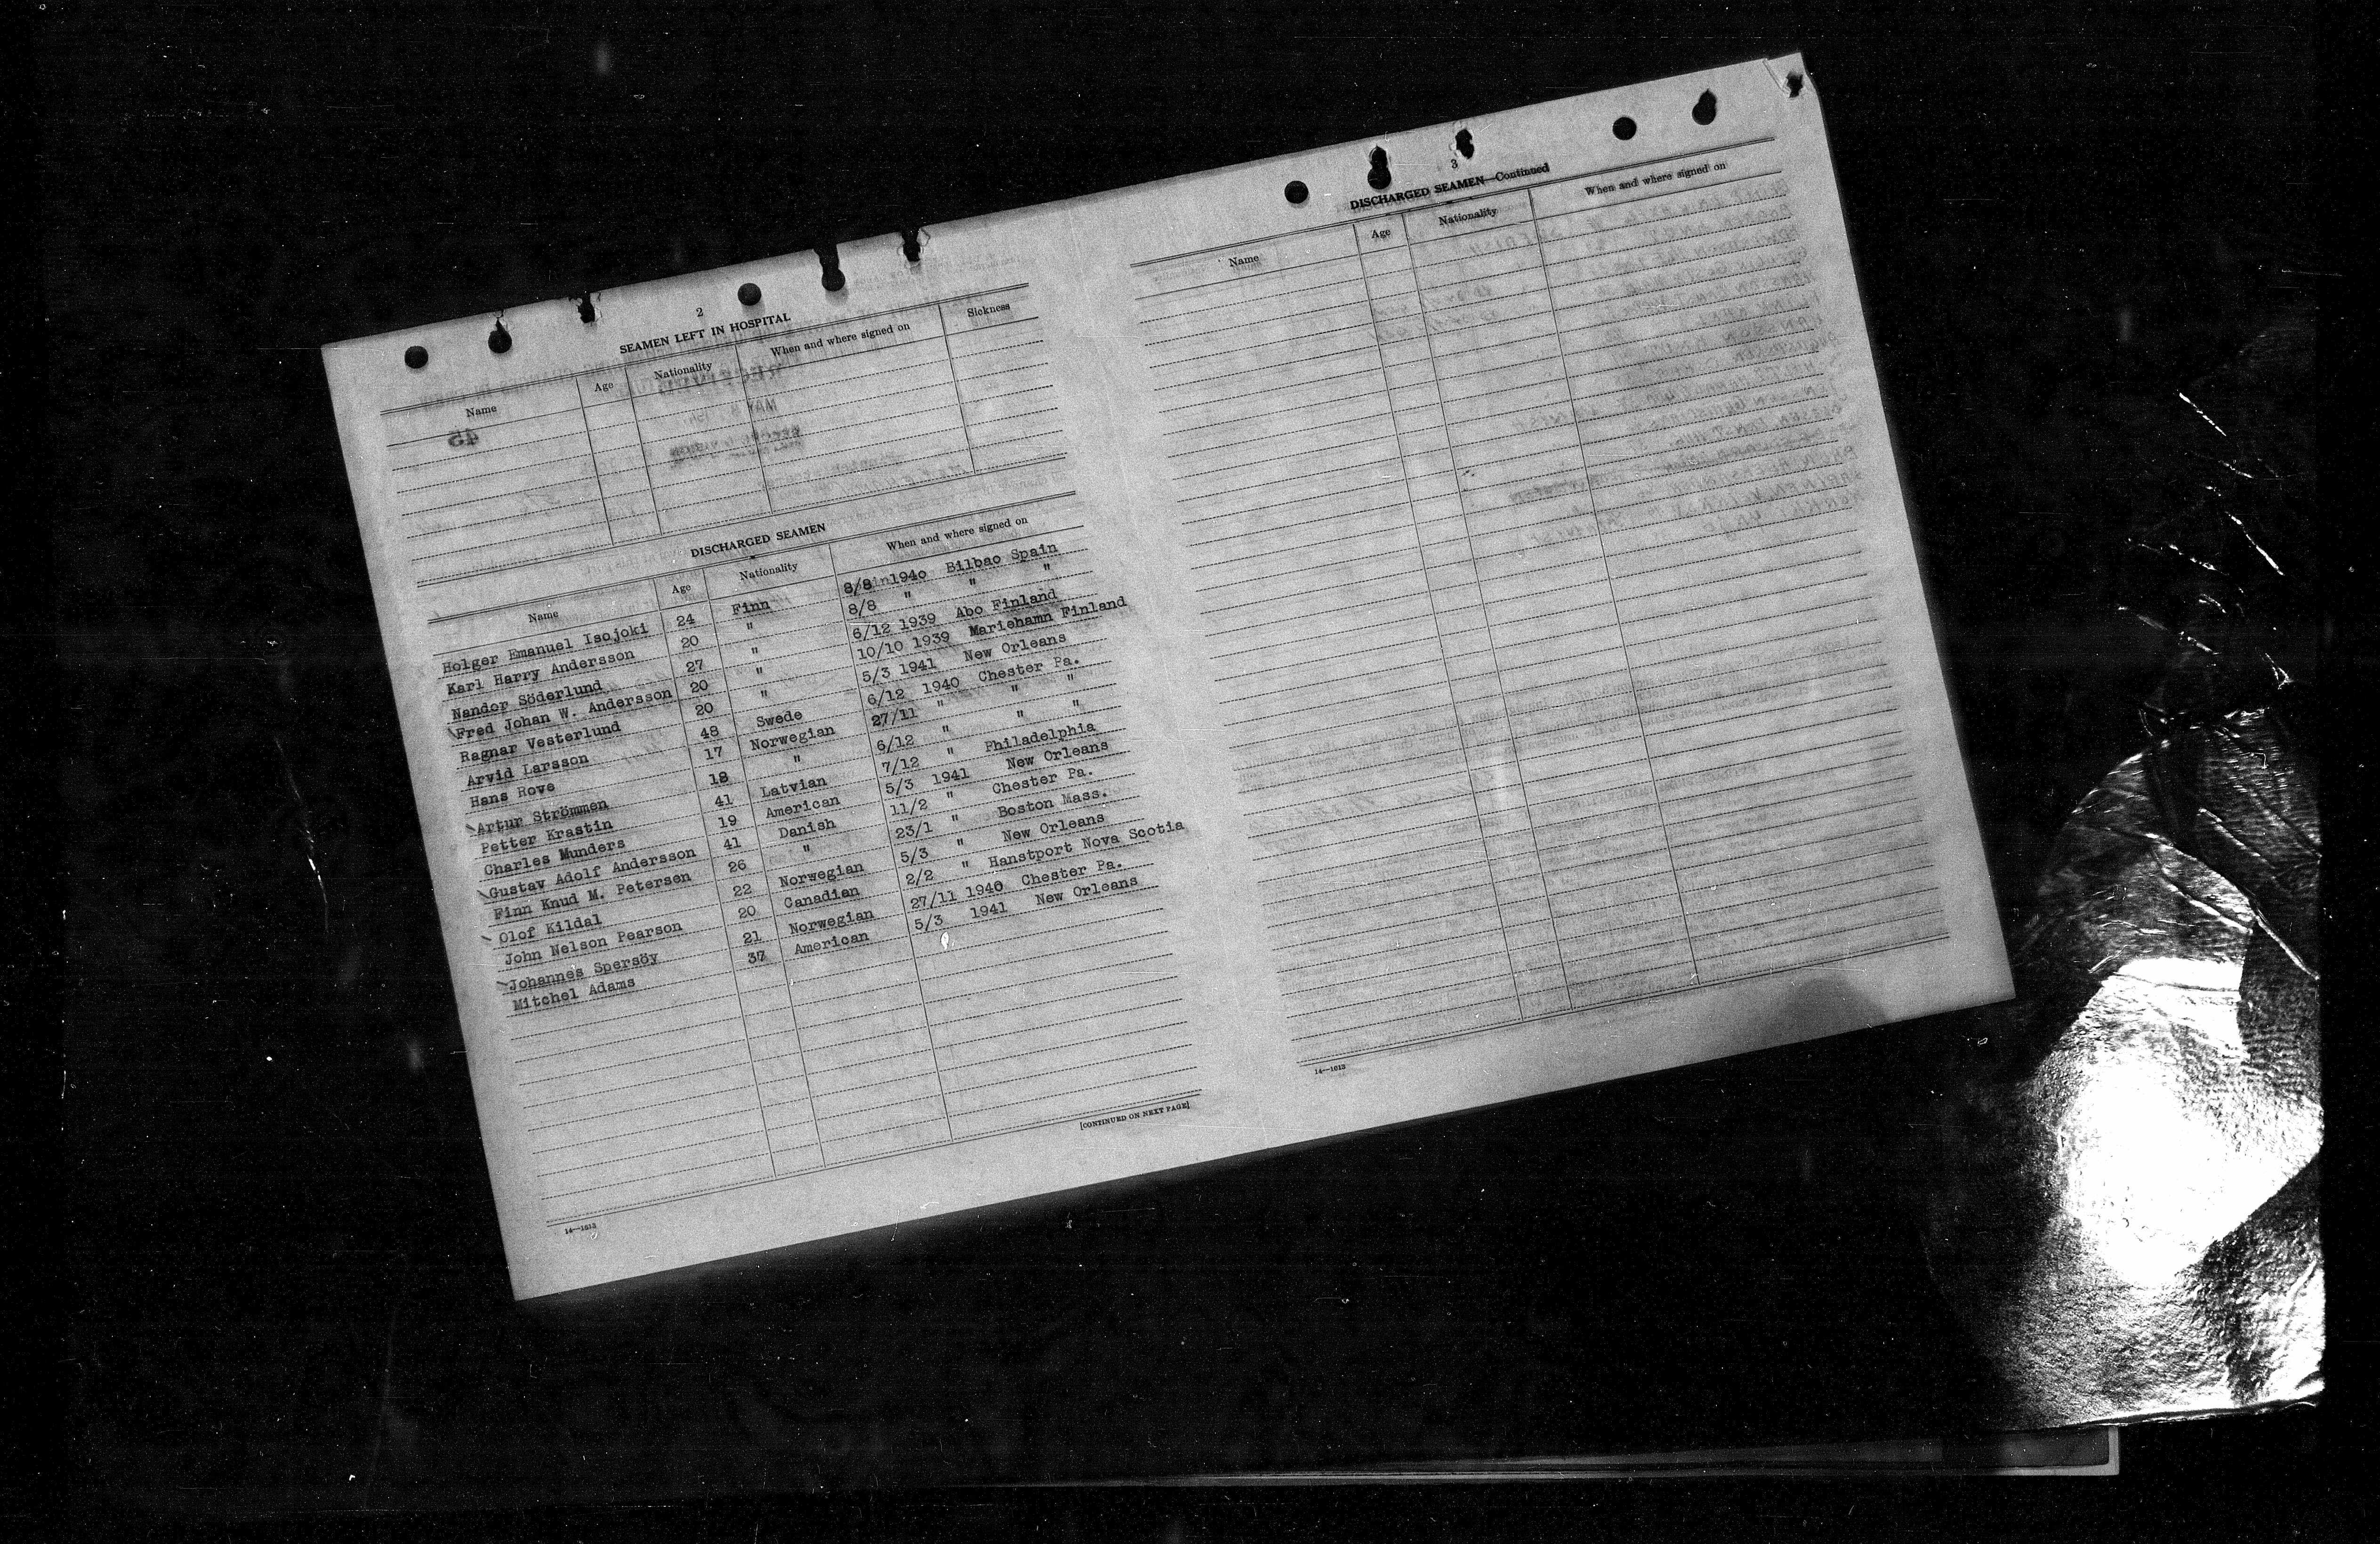 2
SEAMEN LEFT IN HOSPITAL
Name Age Nationality When and where signed on Sickness
DISCHARGED SEAMEN
Name Age Nationality When and where signed on
Holger Emanuel Isojoki 24 Finn 8/8 1940 Bilbao Spain
Karl Harry Andersson 20 " 8/8 " " "
Nandor Söderlund 27 " 6/12 1939 Abo Finland
Fred Johan W. Andersson 20 " 10/10 1939 Mariehamn Finland
Ragnar Vesterlund 20 " 5/3 1941 New Orleans
Arvid Larsson 48 Swede 6/12 1940 Chester Pa.
Hans Hove 17 Norwegian 27/11 " " "
Artur Strömmen 18 " 6/12 " " "
Petter Krastin 41 Latvian 7/12 " Philadelphia
Charles Munders 19 American 5/3 1941 New Orleans
Gustav Adolf Andersson 41 Danish 11/2 " Chester Pa.
Finn Knud M. Petersen 26 " 23/1 " Boston Mass.
Olof Kildal 22 Norwegian 5/3 " New Orleans
John Nelson Pearson 20 Canadian 2/2 " Hanstport Nova Scotia
Johannes Spersöy 21 Norwegian 27/11 1940 Chester Pa.
Mitchel Adams 37 American 5/3 1941 New Orleans
[CONTINUED ON NEXT PAGE]
14—1613
3
DISCHARGED SEAMEN—Continued
Name Age Nationality When and where signed on
14—1613